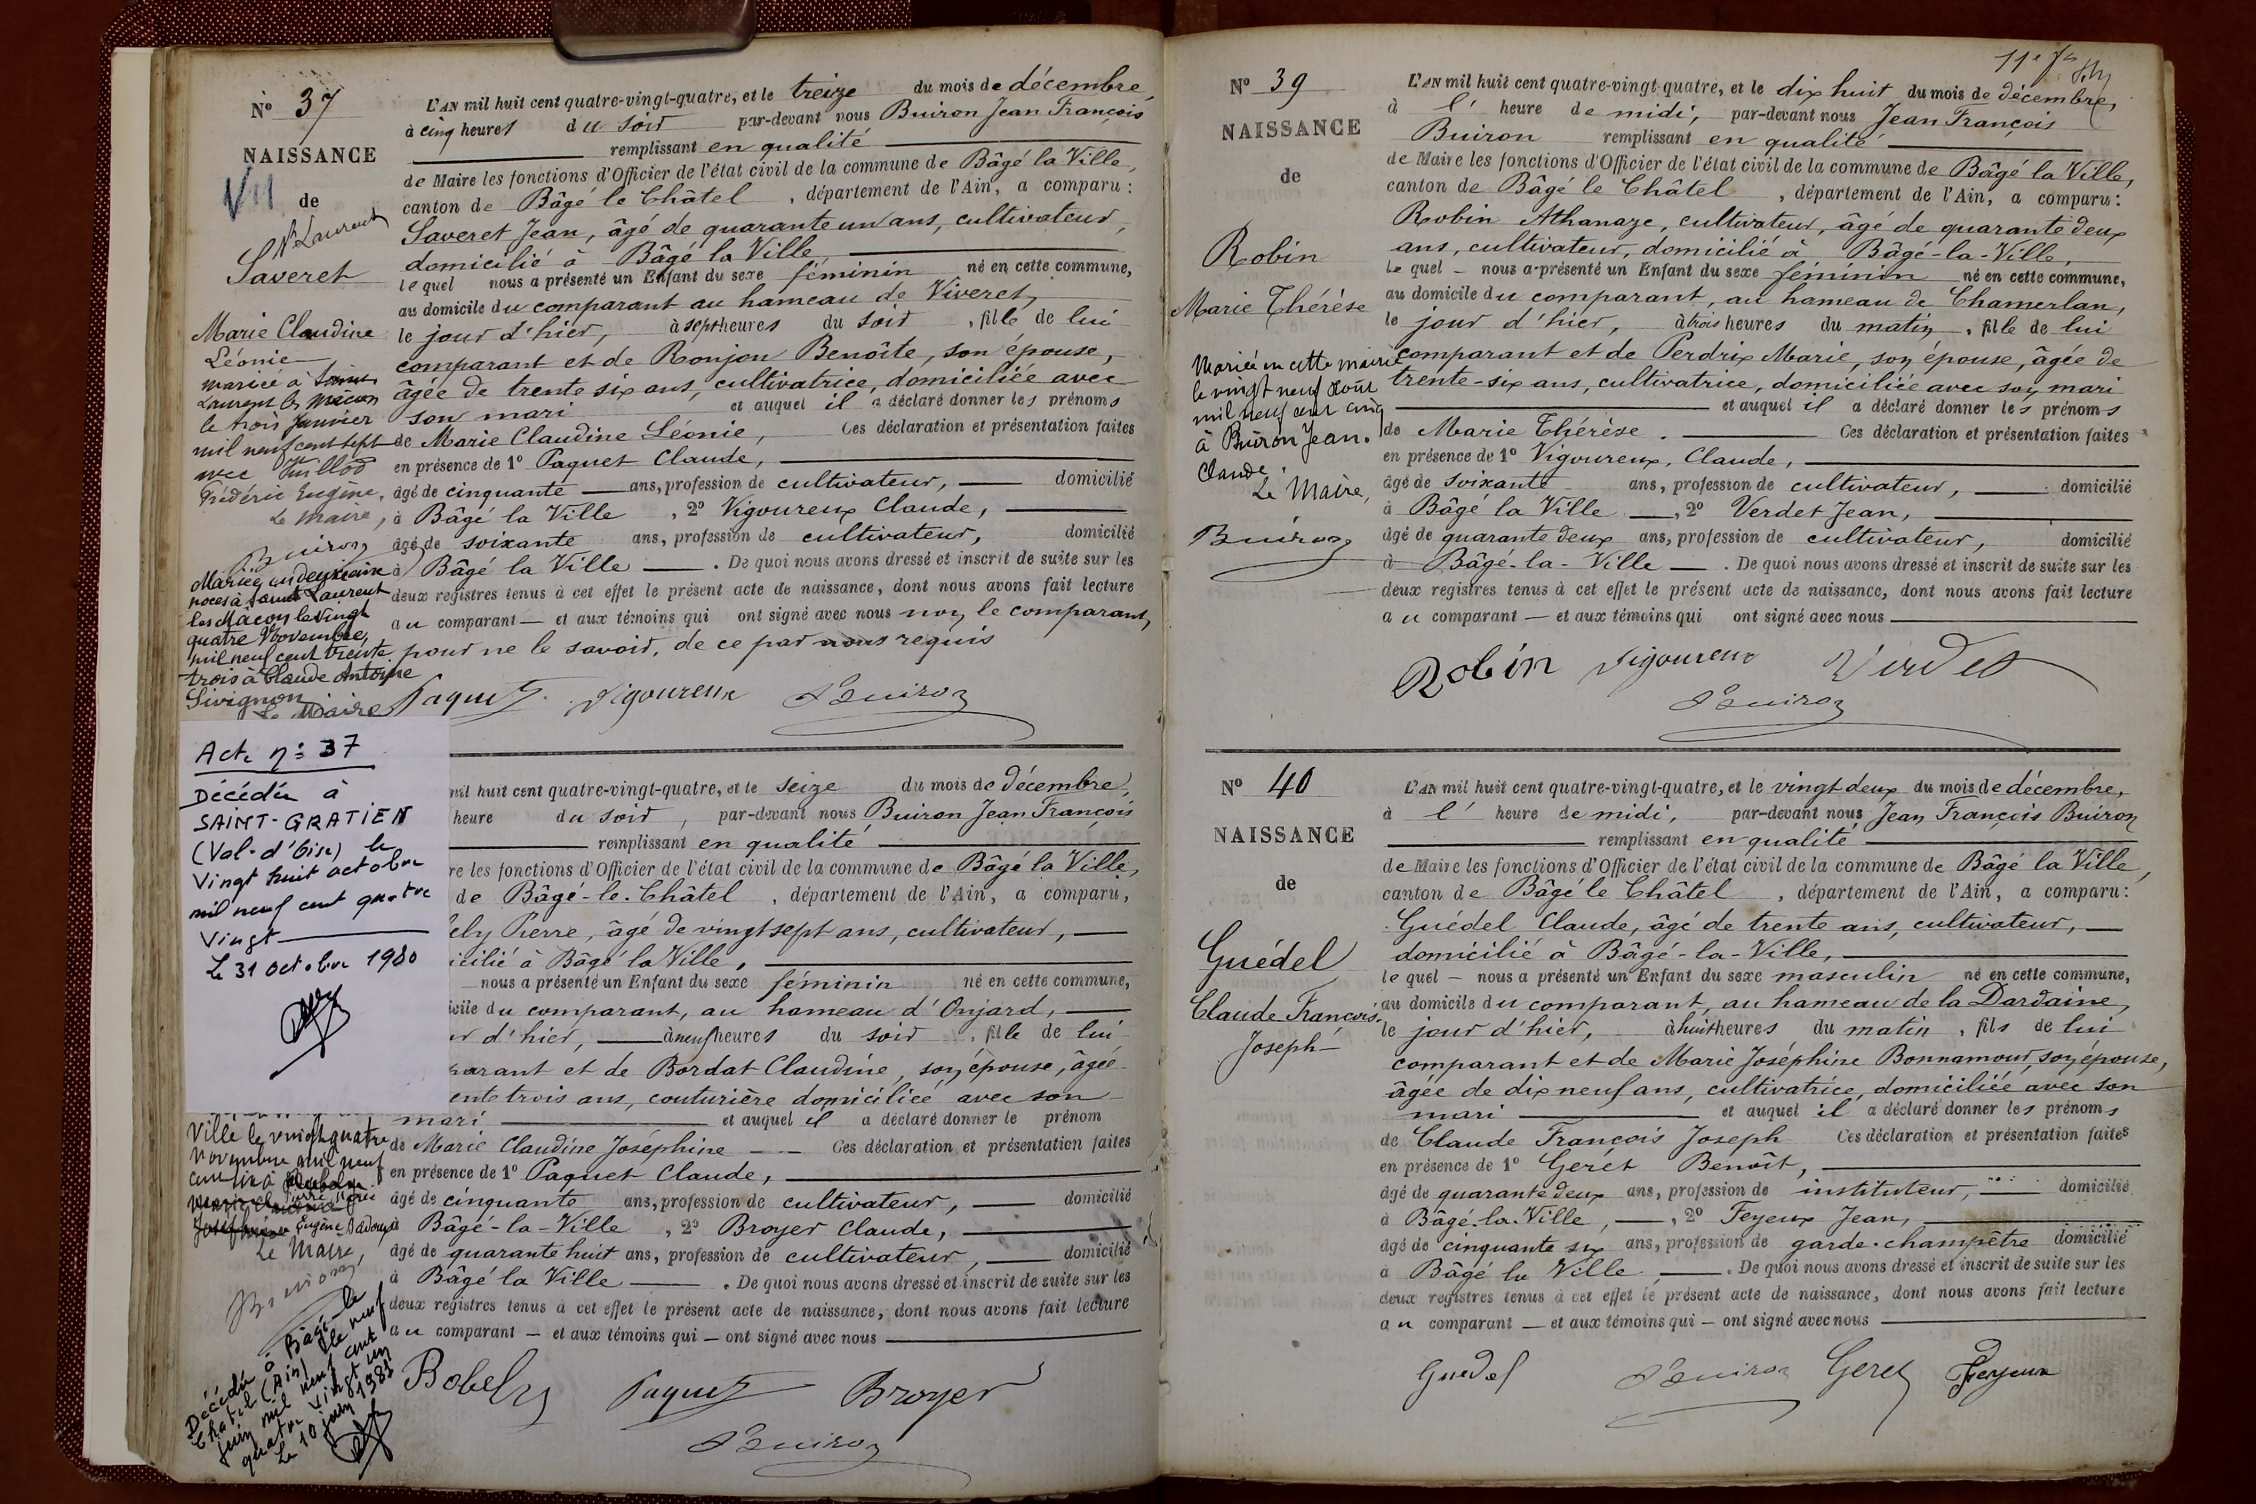 Nº 37
NAISSANCE
VII de
St Laurent
Saveret
Marie Claudine
Léonie
mariée à Saint
Laurent les Mâcon
le trois Janvier
mil neuf cent sept
avec
Frédéric Eugène,
Le Maire,
Buiron
Mariée en deuxième
noces à Saint Laurent
les Mâcon le vingt
quatre Novembre,
mil neuf cent trente
trois à Claude Antoine
Sivignon
Le Maire
L'AN mil huit cent quatre-vingt-quatre, et le treize du mois de décembre,
à cinq heures du soir par-devant nous Buiron Jean François
remplissant en qualité
de Maire les fonctions d'Officier de l'état civil de la commune de Bâgé la Ville,
canton de Bâgé le Châtel, département de l'Ain, a comparu :
Saveret Jean, âgé de quarante un ans, cultivateur,
domicilié à Bâgé la Ville,
lequel nous a présenté un Enfant du sexe féminin né en cette commune,
au domicile du comparant au hameau de Viveret,
le jour d'hier, à sept heures du soir, fille de lui
comparant et de Ronjon Benoîte, son épouse,
âgée de trente six ans, cultivatrice, domiciliée avec
son mari et auquel il a déclaré donner les prénoms
de Marie Claudine Léonie, Ces déclaration et présentation faites
en présence de 1º Paquet Claude,
âgé de cinquante ans, profession de cultivateur, domicilié
à Bâgé la Ville, 2º Vigoureux Claude,
âgé de soixante ans, profession de cultivateur, domicilié
à Bâgé la Ville. De quoi nous avons dressé et inscrit de suite sur les
deux registres tenus à cet effet le présent acte de naissance, dont nous avons fait lecture
au comparant et aux témoins qui ont signé avec nous non le comparant,
pour ne le savoir, de ce par nous requis
Paquet Vigoureux Buiron
Acte nº 37
Décédée à
SAINT-GRATIEN
(Val-d'Oise) le
Vingt huit octobre
mil neuf cent quatre
Vingt
Le 31 octobre 1980
mil huit cent quatre-vingt-quatre, et le seize du mois de décembre,
heure du soir, par-devant nous Buiron Jean François
remplissant en qualité
re les fonctions d'Officier de l'état civil de la commune de Bâgé la Ville,
de Bâgé-le-Châtel, département de l'Ain, a comparu,
ely Pierre, âgé de vingt sept ans, cultivateur,
icilié à Bâgé la Ville,
nous a présenté un Enfant du sexe féminin né en cette commune,
icile du comparant, au hameau d'Onjard,
ur d'hier, à neuf heures du soir, fille de lui
parant et de Bordat Claudine, son épouse, âgée
ente trois ans, couturière domiciliée avec son
mari et auquel il a déclaré donner le prénom
de Marie Claudine Joséphine Ces déclaration et présentation faites
en présence de 1º Paquet Claude,
âgé de cinquante ans, profession de cultivateur, domicilié
à Bâgé-la-Ville, 2º Broyer Claude,
âgé de quarante huit ans, profession de cultivateur, domicilié
à Bâgé la Ville. De quoi nous avons dressé et inscrit de suite sur les
deux registres tenus à cet effet le présent acte de naissance, dont nous avons fait lecture
au comparant et aux témoins qui ont signé avec nous
Bobely Paquet Broyer
Buiron
Ville le vingt quatre
novembre mil neuf
cent six à
Pierre Marie
Eugène
Le Maire,
Buiron
Décédée à Bâgé-le
Chatel (Ain) le neuf
juin mil neuf cent
quatre vingt un
Le 10 juin 1981
11e fe
Nº 39
NAISSANCE
de
Robin
Marie Thérèse
Mariée en cette mairie
le vingt neuf Août
mil neuf cent cinq
à Buiron Jean.
Claude.
Le Maire,
Buiron
L'AN mil huit cent quatre-vingt-quatre, et le dix huit du mois de décembre,
à l' heure de midi, par-devant nous Jean François
Buiron remplissant en qualité
de Maire les fonctions d'Officier de l'état civil de la commune de Bâgé la Ville,
canton de Bâgé le Châtel, département de l'Ain, a comparu :
Robin Athanaze, cultivateur, âgé de quarante deux
ans, cultivateur, domicilié à Bâgé-la-Ville,
le quel nous a présenté un Enfant du sexe féminin né en cette commune,
au domicile du comparant, au hameau de Chamerlan,
le jour d'hier, à trois heures du matin, fille de lui
comparant et de Perdrix Marie, son épouse, âgée de
trente-six ans, cultivatrice, domiciliée avec son mari
et auquel il a déclaré donner les prénoms
de Marie Thérèse. Ces déclaration et présentation faites
en présence de 1º Vigoureux, Claude,
âgé de soixante ans, profession de cultivateur, domicilié
à Bâgé la Ville, 2º Verdet Jean,
âgé de quarante deux ans, profession de cultivateur, domicilié
à Bâgé-la-Ville. De quoi nous avons dressé et inscrit de suite sur les
deux registres tenus à cet effet le présent acte de naissance, dont nous avons fait lecture
au comparant et aux témoins qui ont signé avec nous
Robin Vigoureux Verdet
Buiron
Nº 40
NAISSANCE
de
Guédel
Claude François
Joseph
L'AN mil huit cent quatre-vingt-quatre, et le vingt deux du mois de décembre,
à l' heure de midi, par-devant nous Jean François Buiron
remplissant en qualité
de Maire les fonctions d'Officier de l'état civil de la commune de Bâgé la Ville,
canton de Bâgé le Châtel, département de l'Ain, a comparu :
Guédel Claude, âgé de trente ans, cultivateur,
domicilié à Bâgé-la-Ville,
le quel nous a présenté un Enfant du sexe masculin né en cette commune,
au domicile du comparant, au hameau de la Dardaine,
le jour d'hier, à huit heures du matin, fils de lui
comparant et de Marie Joséphine Bonnamour, son épouse,
âgée de dix neuf ans, cultivatrice, domiciliée avec son
mari et auquel il a déclaré donner les prénoms
de Claude François Joseph Ces déclaration et présentation faites
en présence de 1º Gerét Benoît,
âgé de quarante deux ans, profession de instituteur, domicilié
à Bâgé-la-Ville, 2º Feyeux Jean,
âgé de cinquante six ans, profession de garde-champêtre domicilié
à Bâgé la Ville. De quoi nous avons dressé et inscrit de suite sur les
deux registres tenus à cet effet le présent acte de naissance, dont nous avons fait lecture
au comparant et aux témoins qui ont signé avec nous
Guédel Buiron Geret Feyeux